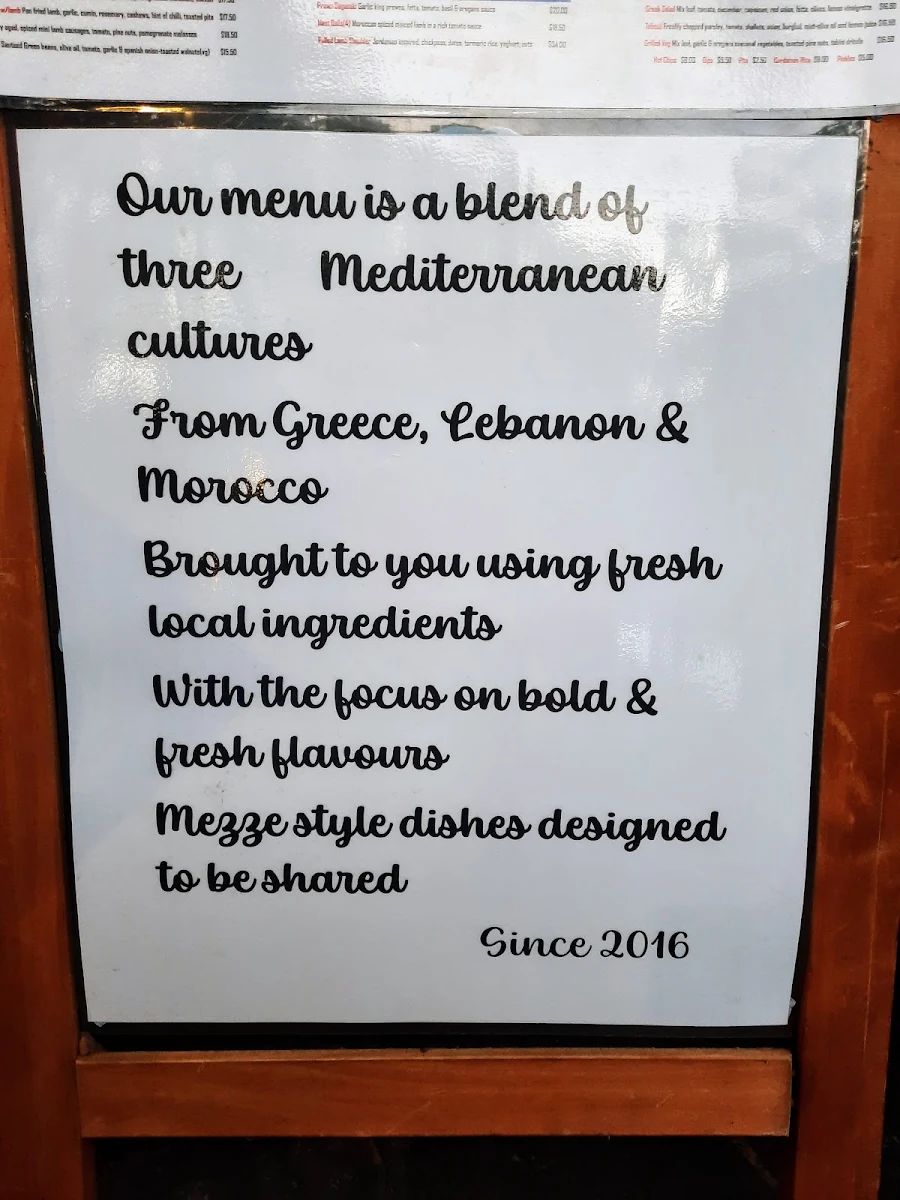 Pan fried lamb, garlic, cumin, rosemary, cashews, hint of chilli, toasted pita $17.50
aged, spiced mini lamb sausages, tomato, pine nuts, pomegranate molasses $18.50
Sauteed Green beans, olive oil, tomato, garlic & spanish onion-toasted walnuts(vg) $15.50
Garlic king prawns, fetta, tomato, basil & oregano sauce
Meat Balls(4) Moroccan spiced minced lamb in a rich tomato sauce
Pulled Lamb Shoulder Jordanian
chickpeas, dates, turmeric rice, yoghurt, nuts
Greek Salad Mix leaf, tomato, cucumber, capsicum, red onion, fetta, olives, lemon vinaigrette
Tabouli Freshly chopped parsley, tomato, shallots, onion, burghul, mint-olive oil and lemon juice
Grilled Veg Mix leaf, garlic & oregano seasonal vegetables, toasted pine nuts, tahini drizzle
Hot Chips
Dips
Pita
Cardamon Rice
Pickles
Our menu is a blend of
three Mediterranean
cultures
From Greece, Lebanon &
Morocco
Brought to you using fresh
local ingredients
With the focus on bold &
fresh flavours
Mezze style dishes designed
to be shared
Since 2016